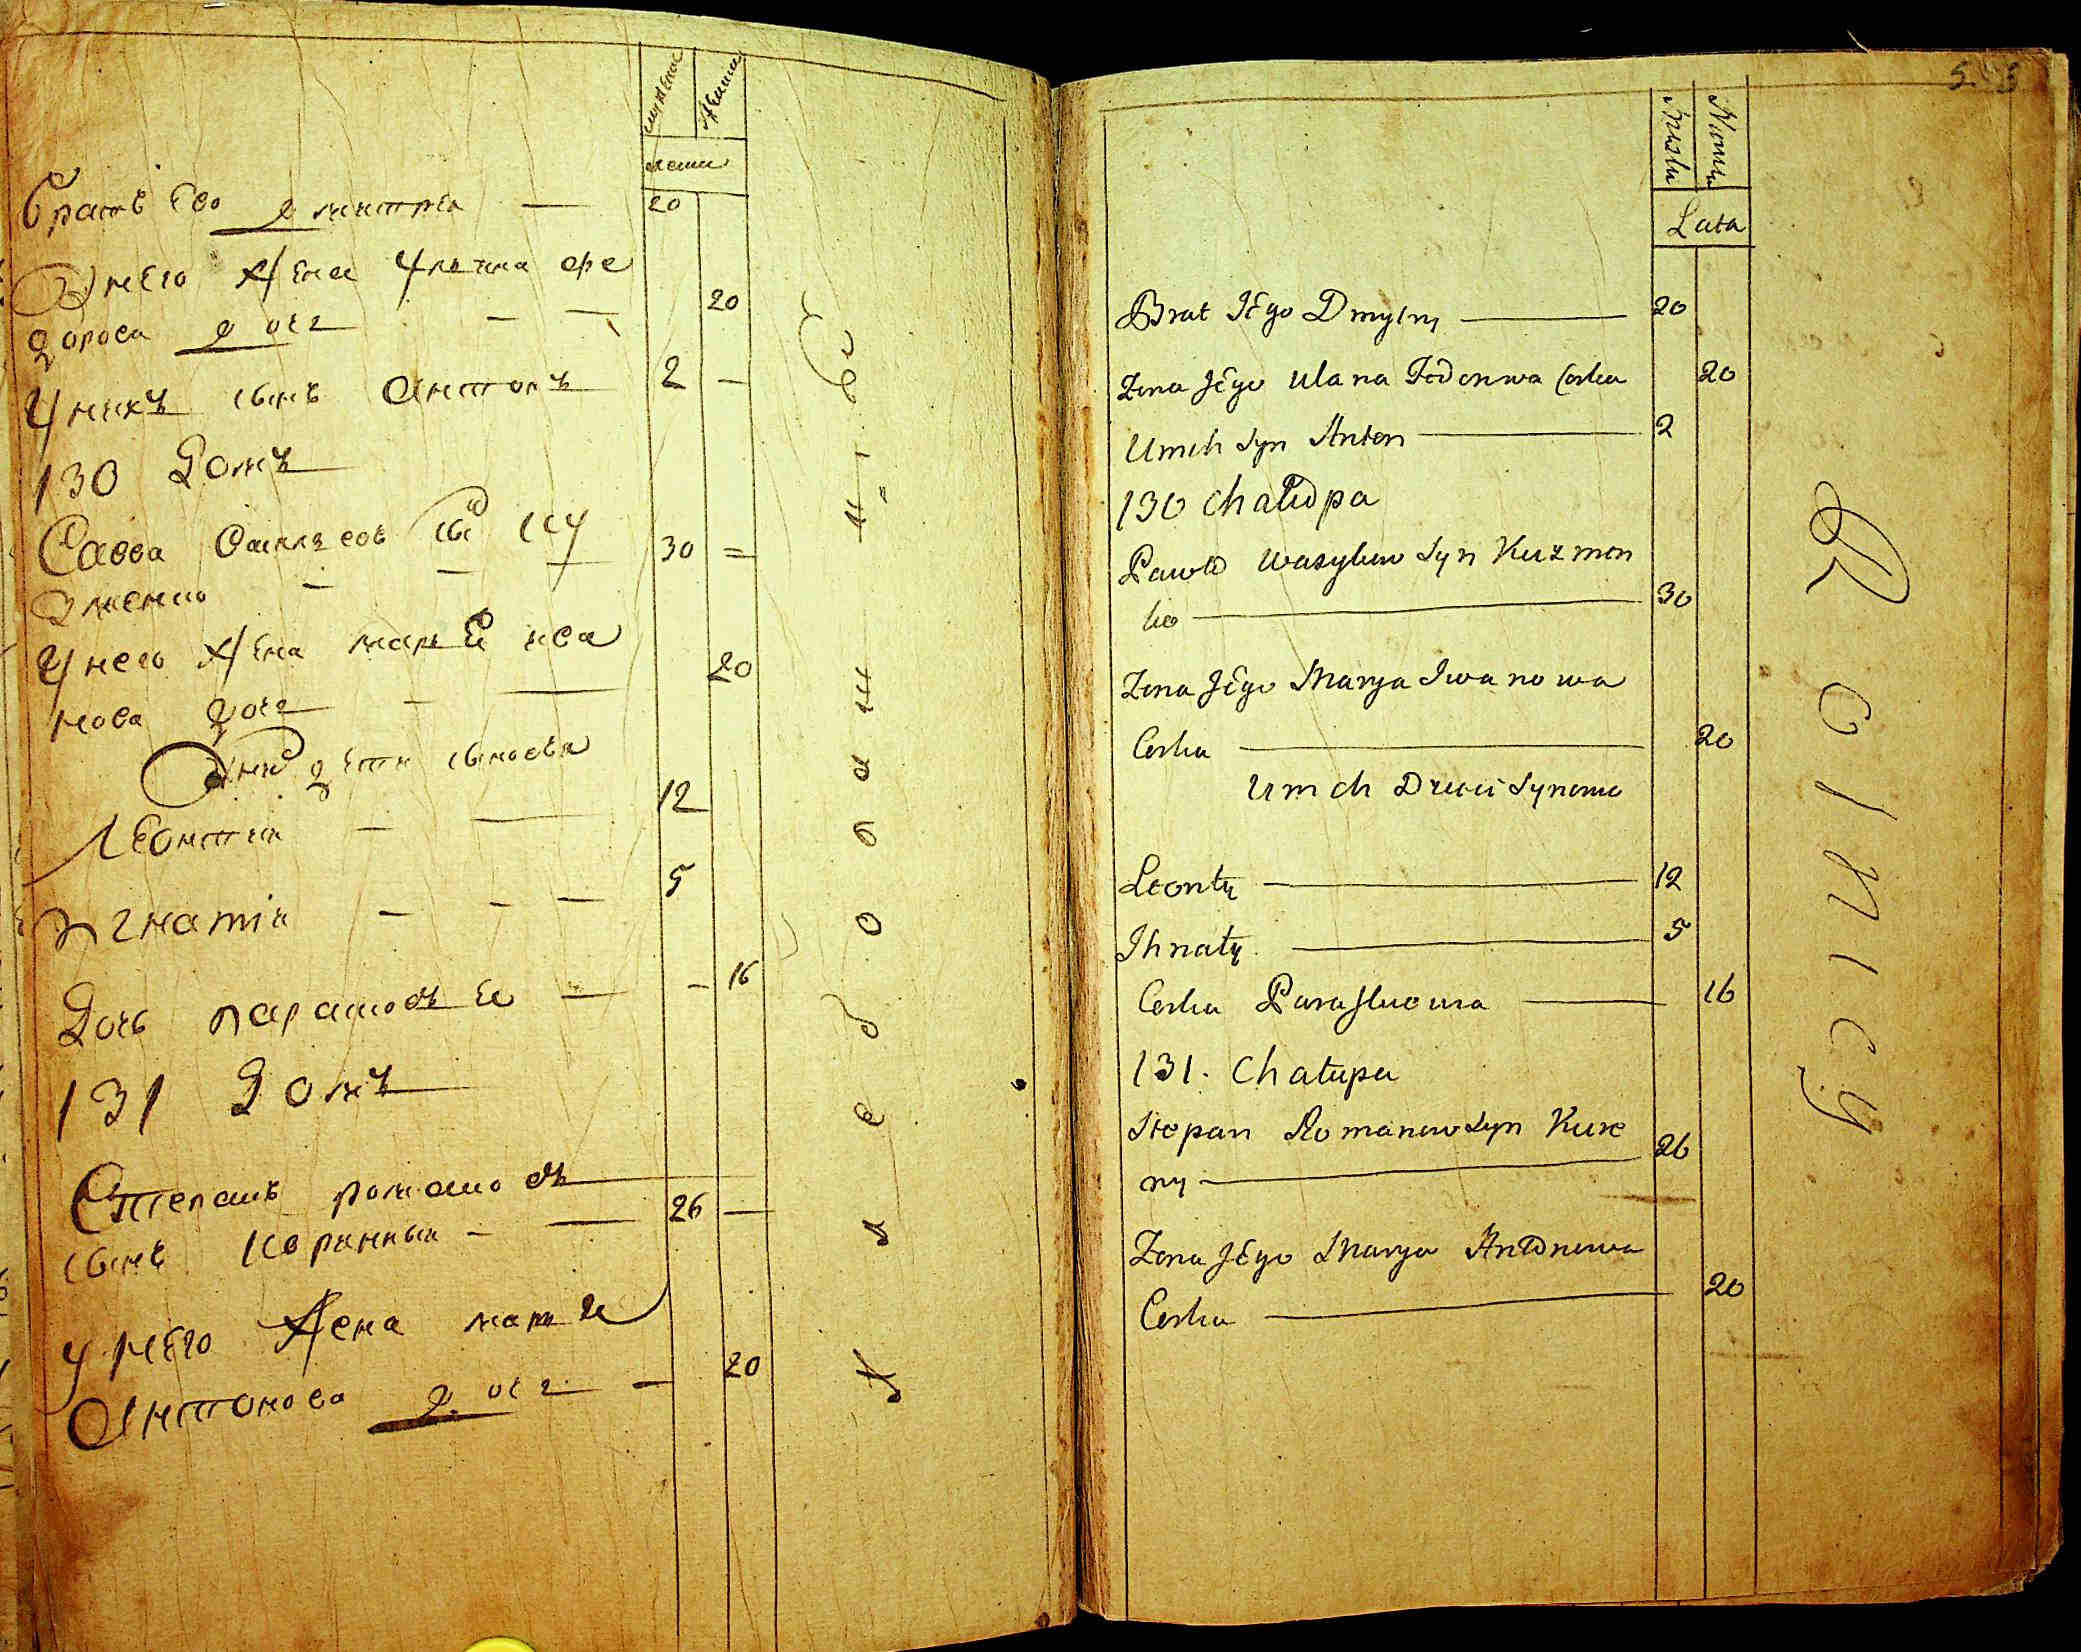 мужеска
женска
лета
братъ Его Дмитрей — 20
Унего жена Улиана Фе
дорова доч — — 20
Униxъ сынъ Антонъ 2 —
130 Домъ
Савва Васильевъ сы Ку
зменко — — — 30 =
Унего жена маръЕя ива
нова доч — — 20
Унихъ дети сыновья
Леонтий — — 12
Игнатiй — — — 5
Дочь парасковЕя — — 16
131 Домъ
Степанъ романовъ
сынъ Куринный — — 26 —
Унего жена маръя
Антонова доч — 20
хлебопашцы
5
Męska
Lata
Brat JEgo Dmytry — 20
Zona JEgo Ulana Fedorowa Corka 20
Umch Syn Anton — 2
130 Chałupa
Paweł Wasylow Syn Kuzmen
ko — 30
Zona JEgo Marya Iwanowa
Corka — 20
Umch Dzieci Synowe
Leonty — 12
Ihnaty — 5
Corka Paraskewia — 16
131. Chałupa
Stepan Romanow Syn Kure
ny — 26
Zona JEgo Marya Antonowa
Corka — 20
Rolnicy